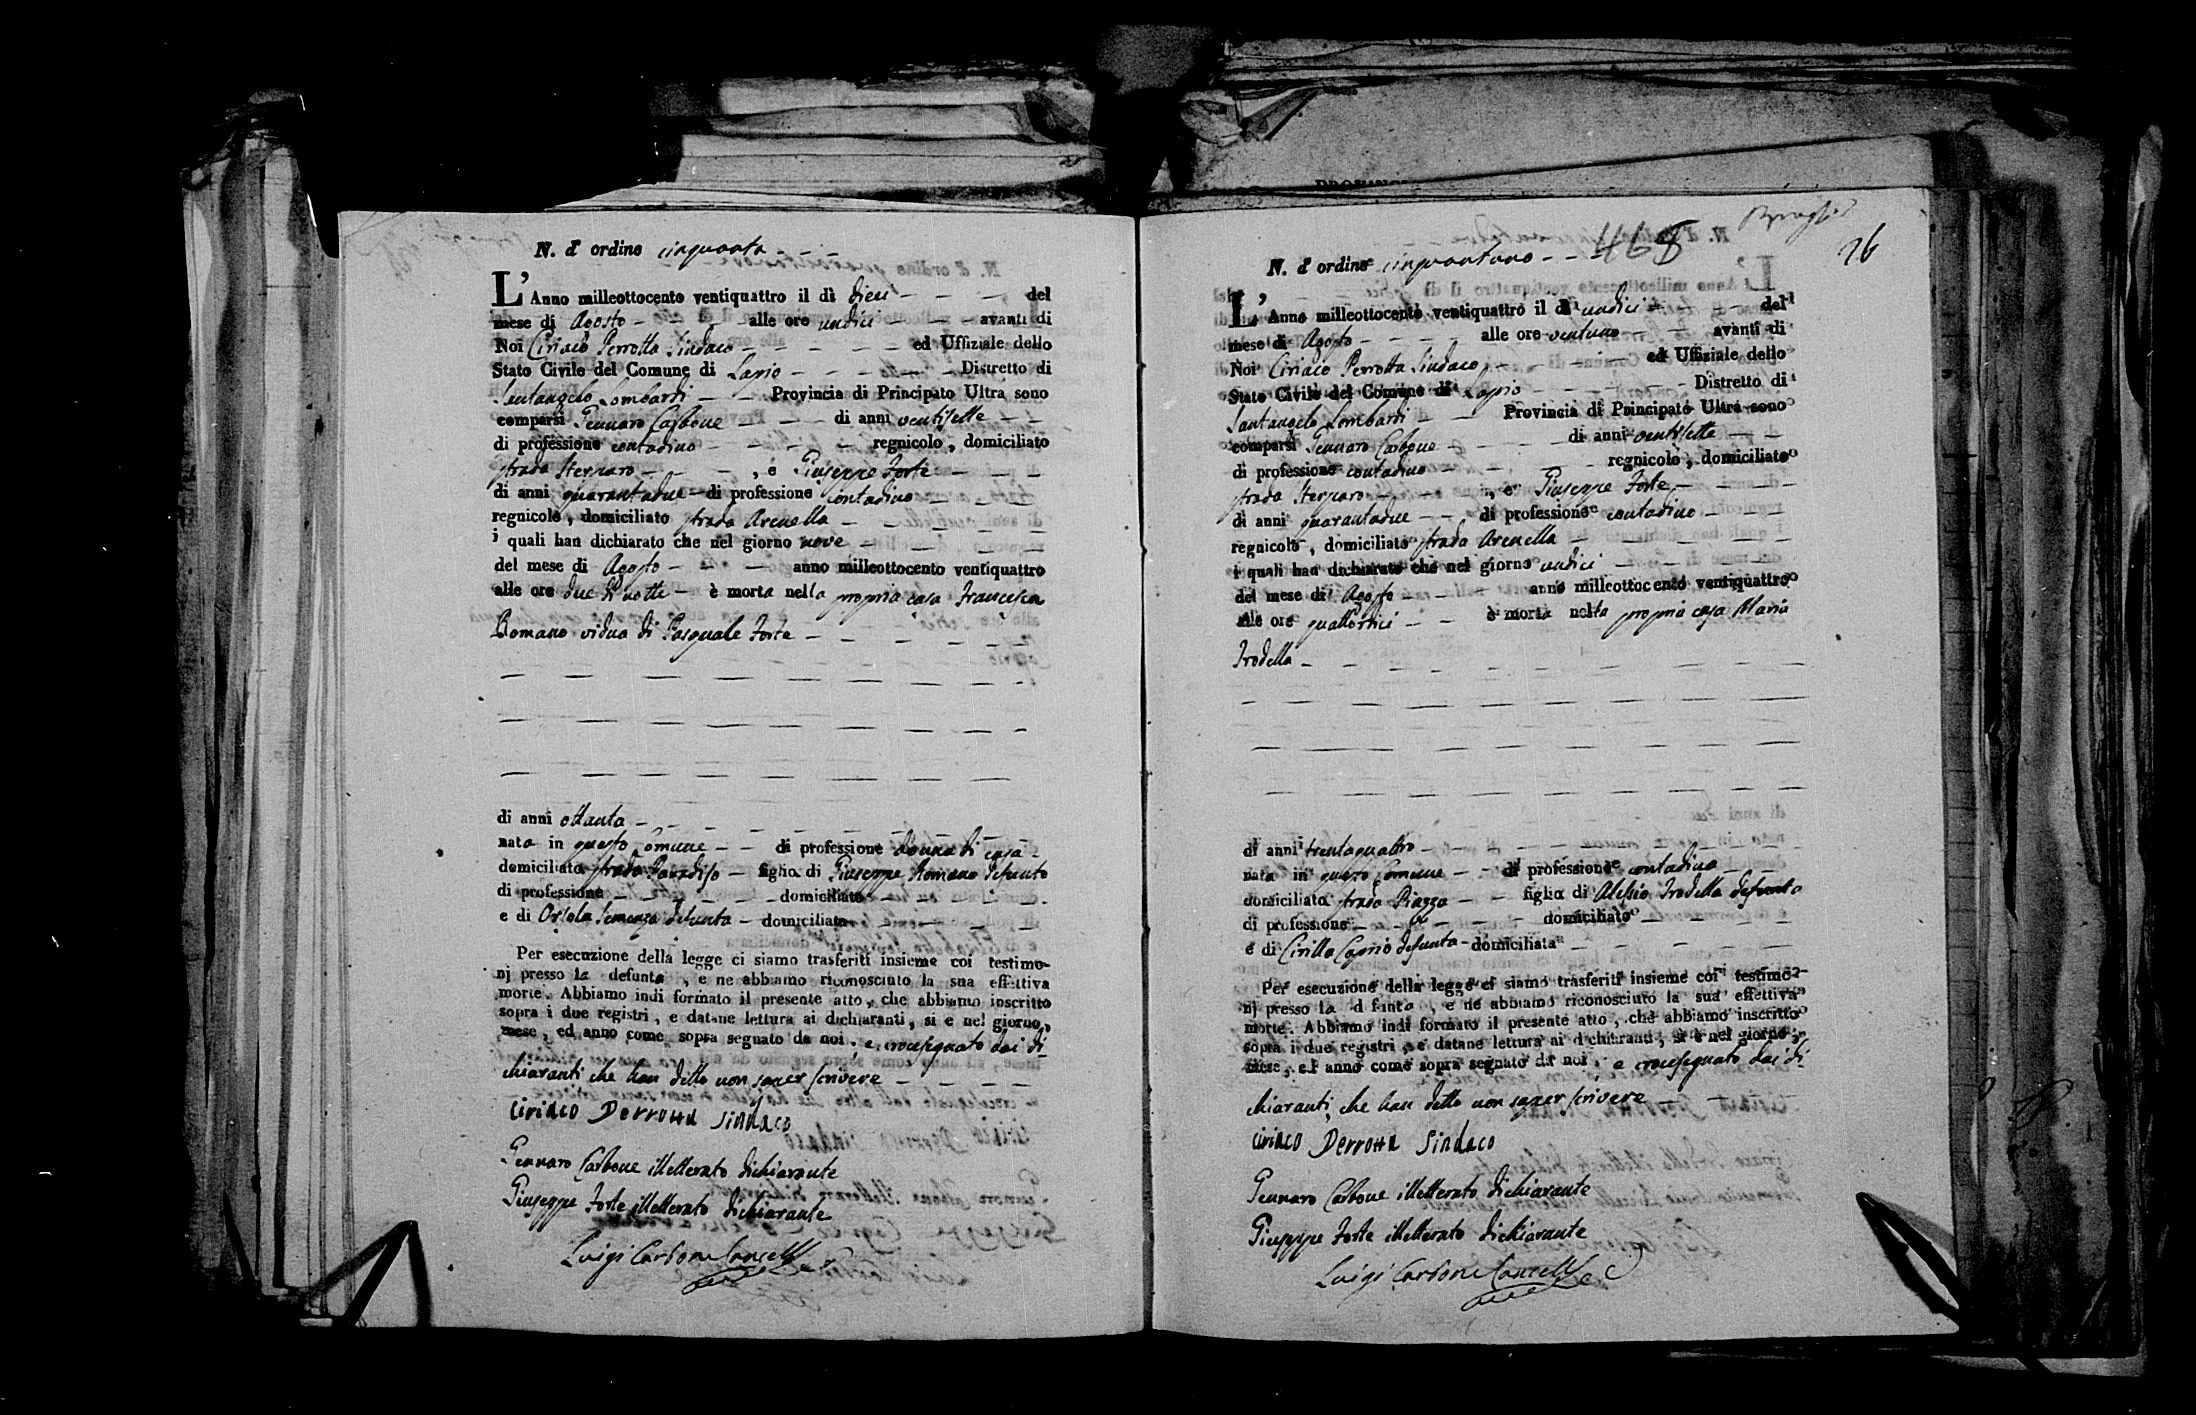 N. d' ordine cinquanta
L' Anno milleottocento ventiquattro il dì dieci - - - del
mese di Agosto - - - - alle ore undici - - - avanti di
Noi Ciriaco Perrotta Sindaco - - - - - ed Uffiziale dello
Stato Civile del Comune di Lapio - - - - - Distretto di
Santangelo Lombardi - - Provincia di Principato Ultra sono
comparsi Gennaro Carbone - - - di anni ventisette - -
di professione contadino - - - - - regnicolo, domiciliato
strada Sterparo - - - , e Giuseppe Forte - - - -
di anni quarantadue - di professione contadino - - - -
regnicolo, domiciliato strada Arenella - - - - -
i quali han dichiarato che nel giorno nove - - - -
del mese di Agosto - - - anno milleottocento ventiquattro
alle ore due di notte - è morta nella propria casa Francesca
Romano vidua di Pasquale Forte - - - - - -
di anni ottanta - - - - - - - -
nata in questo Comune - - di professione donna di casa -
domiciliata strada Paradiso - figlia di Giuseppe Romano defunto
di professione - - - - - domiciliato - - - -
e di Orsola Semenza defunta - domiciliata - - - -
Per esecuzione della legge ci siamo trasferiti insieme coi testimo-
nj presso la defunta , e ne abbiamo riconosciuto la sua effettiva
morte. Abbiamo indi formato il presente atto, che abbiamo inscritto
sopra i due registri, e datane lettura ai dichiaranti, si e nel giorno,
mese, ed anno come sopra segnato da noi, e crocesegnato dai di-
chiaranti che han detto non saper scrivere - - - -
Ciriaco Perrotta Sindaco
Gennaro Carbone illetterato dichiarante
Giuseppe Forte illetterato dichiarante
Luigi Carbone Cancell.e
468
76
N. d' ordine cinquantuno - - -
L' Anno milleottocento ventiquattro il dì undici - - - del
mese di Agosto - - - - alle ore ventuno - - avanti di
Noi Ciriaco Perrotta Sindaco - - - - - ed Uffiziale dello
Stato Civile del Comune di Lapio - - - - - Distretto di
Santangelo Lombardi - - Provincia di Principato Ultra sono
comparsi Gennaro Carbone - - - - di anni ventisette - -
di professione contadino - - - - - regnicolo, domiciliato
strada Sterparo - - - , e Giuseppe Forte - - - -
di anni quarantadue - - di professione contadino - - -
regnicolo, domiciliato strada Arenella - - - - -
i quali han dichiarato che nel giorno undici - - - -
del mese di Agosto - - - anno milleottocento ventiquattro
alle ore quattordici - - è morta nella propria casa Maria
Trodella - - - - - - - -
di anni trentaquattro - - - - - - -
nata in questo Comune - - di professione contadina - -
domiciliata strada Piazza - - figlia di Alessio Trodella defunto
di professione - - - - - domiciliato - - - -
e di Cirilla Caprio defunta - domiciliata - - - - -
Per esecuzione della legge ci siamo trasferiti insieme coi testimo-
nj presso la d funta , e ne abbiamo riconosciuto la sua effettiva
morte. Abbiamo indi formato il presente atto, che abbiamo inscritto
sopra i due registri, e datane lettura ai d chiaranti, si e nel giorno,
mese, ed anno come sopra segnato da noi, e crocesegnato dai di-
chiaranti che han detto non saper scrivere - - -
Ciriaco Perrotta Sindaco
Gennaro Carbone illetterato dichiarante
Giuseppe Forte illetterato dichiarante
Luigi Carbone Cancell.e